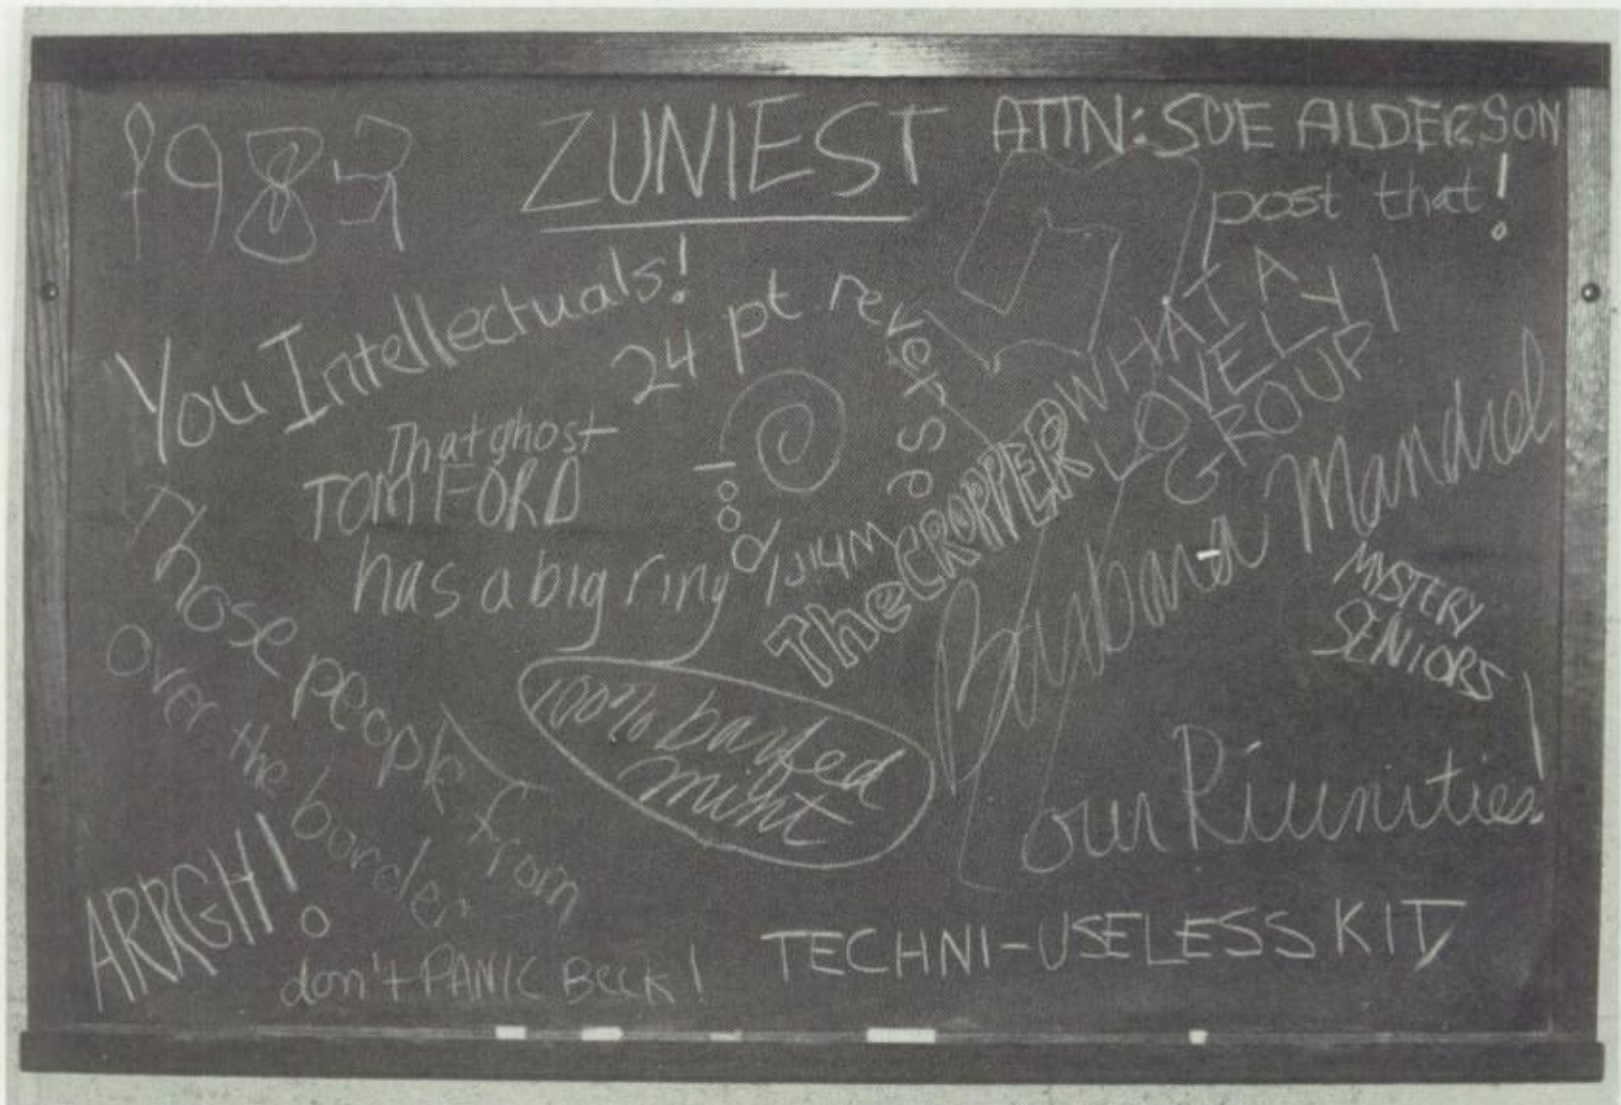 ZUNIEST
ATTN: SUE ALDERSON
post that!
You Intellectuals!
24 pt reverse
WHAT A
LOVELY
GROUP!
That ghost
TOM FORD
has a big ring
The CROPPER
Barbara Mandrel
MYSTERY
SENIORS
Those people from
over the border
100% barfed
mint
our Riunities!
ARRGH!
don't PANIC BECK!
TECHNI-USELESS KIT